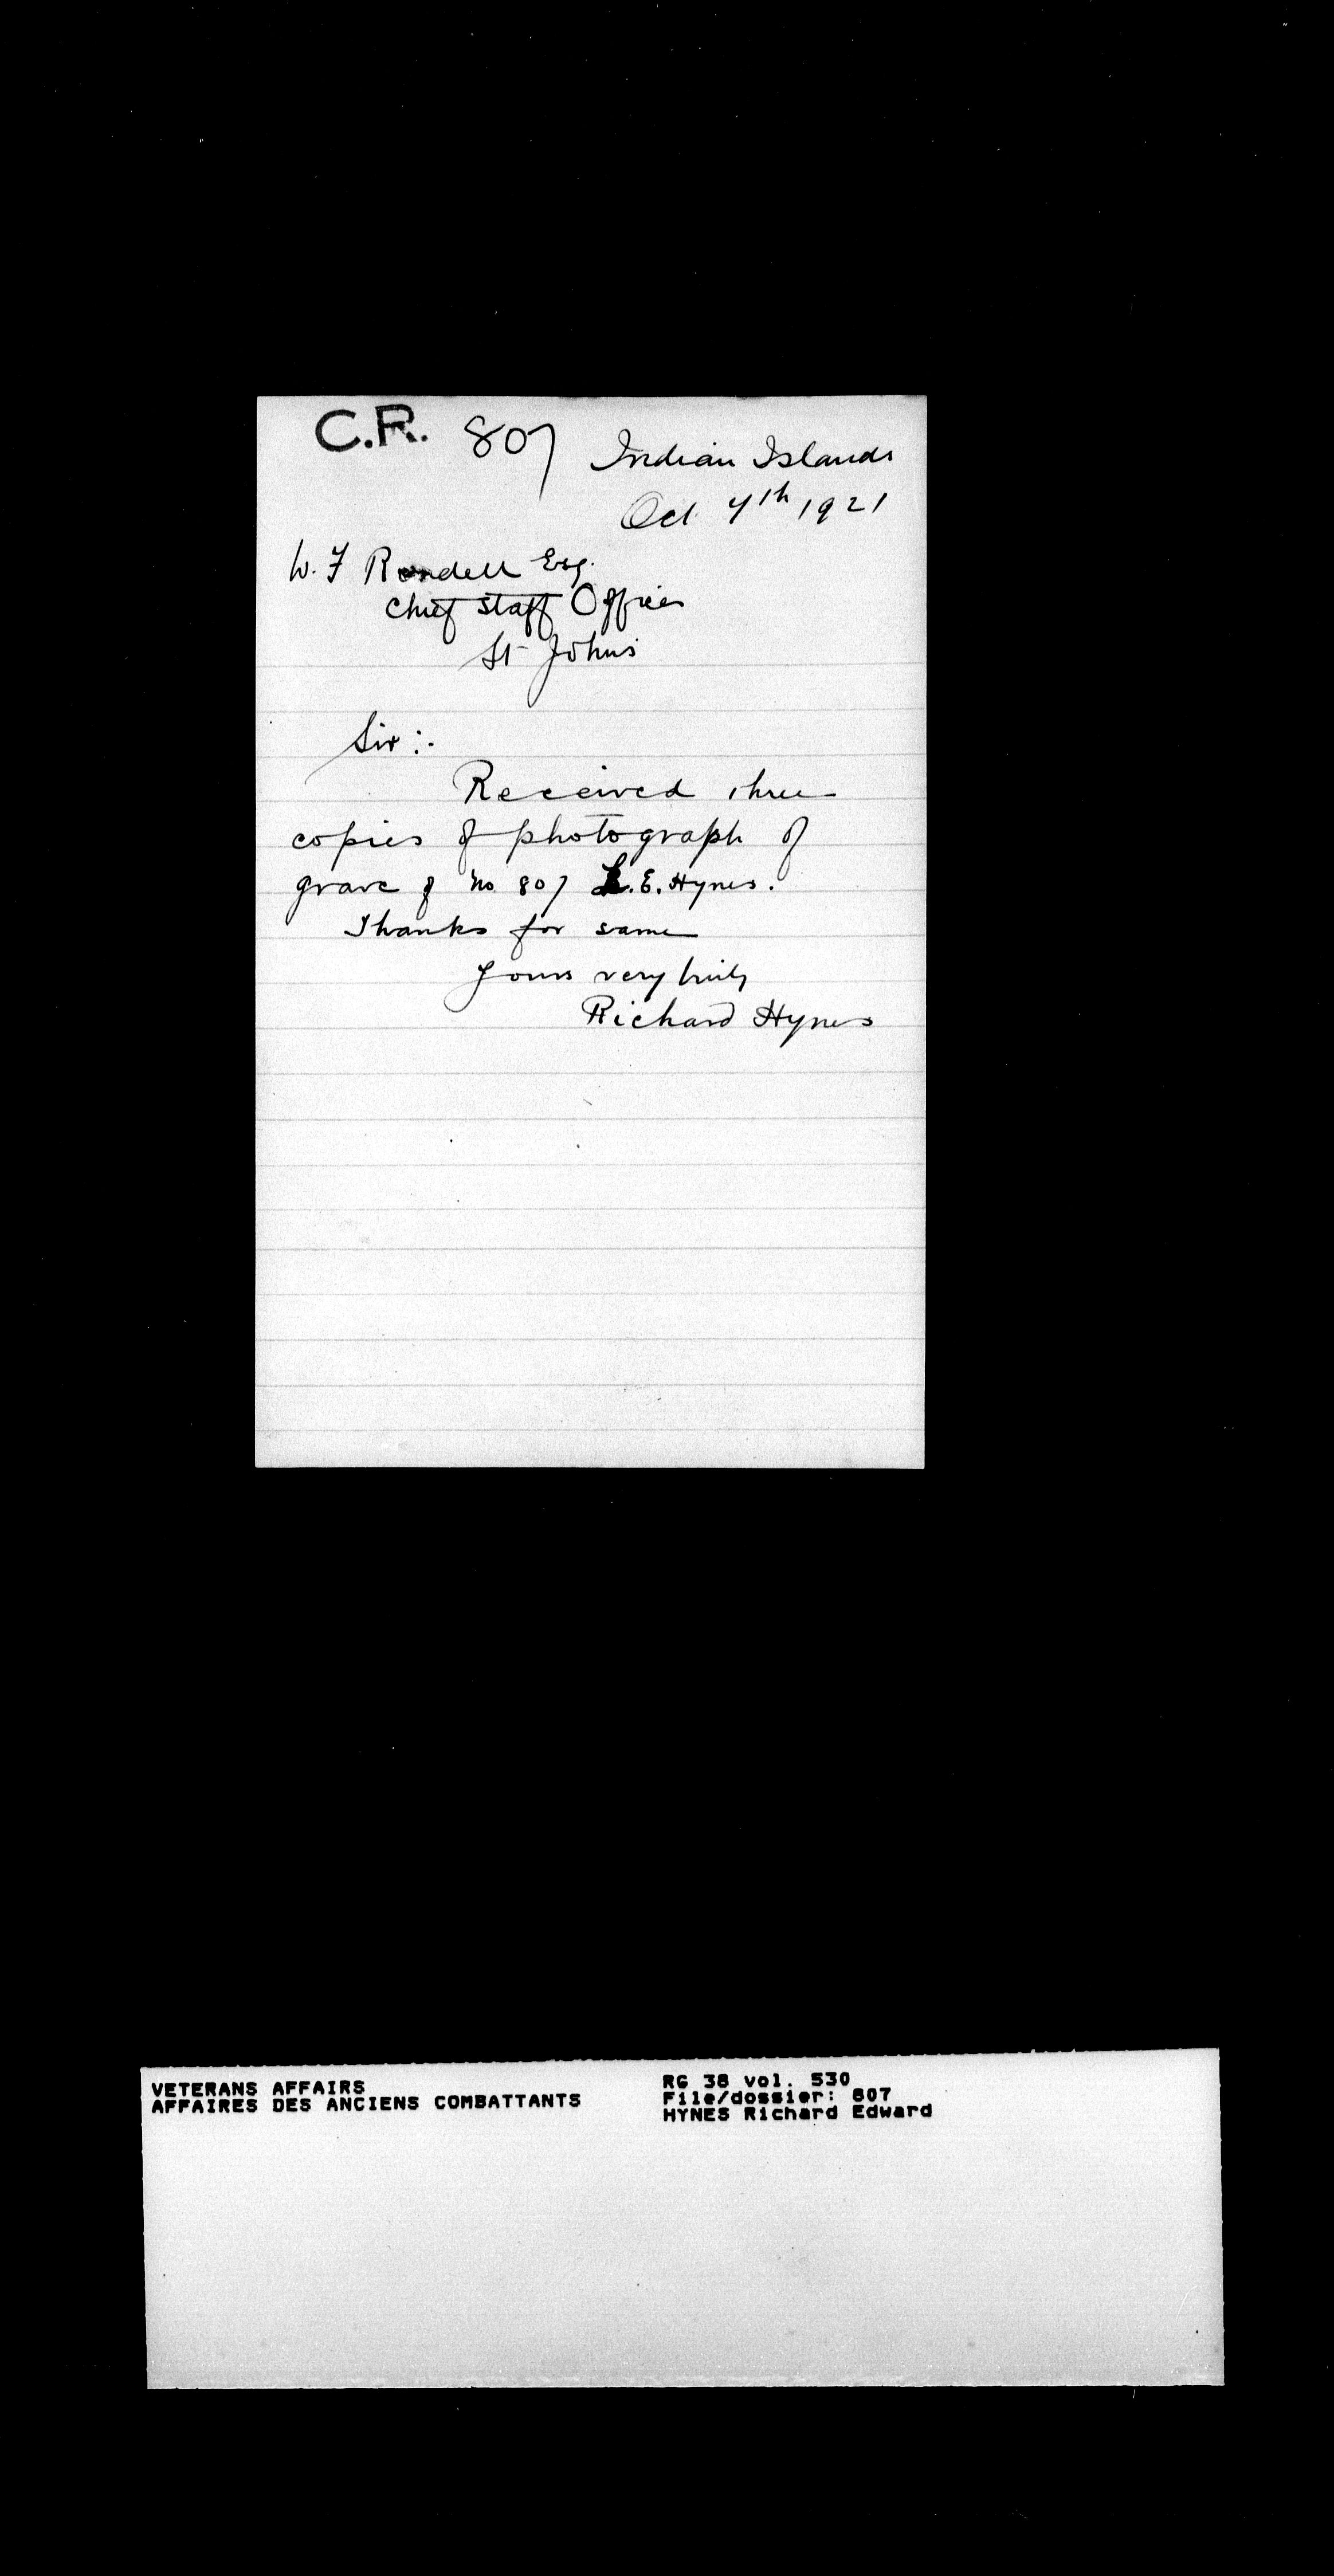 C.R. 807 Indian Islands
Oct 7th 1921
W. F Rendell Esq.
Chief Staff Officer
St Johns
Sir :-
Received three
copies of photograph of
grave of No. 807 .E. Hynes.
Thanks for same
Yours very truly
Richard Hynes
VETERANS AFFAIRS
AFFAIRES DES ANCIENS COMBATTANTS
RG 38 vol. 530
File/dossier: 807
HYNES Richard Edward